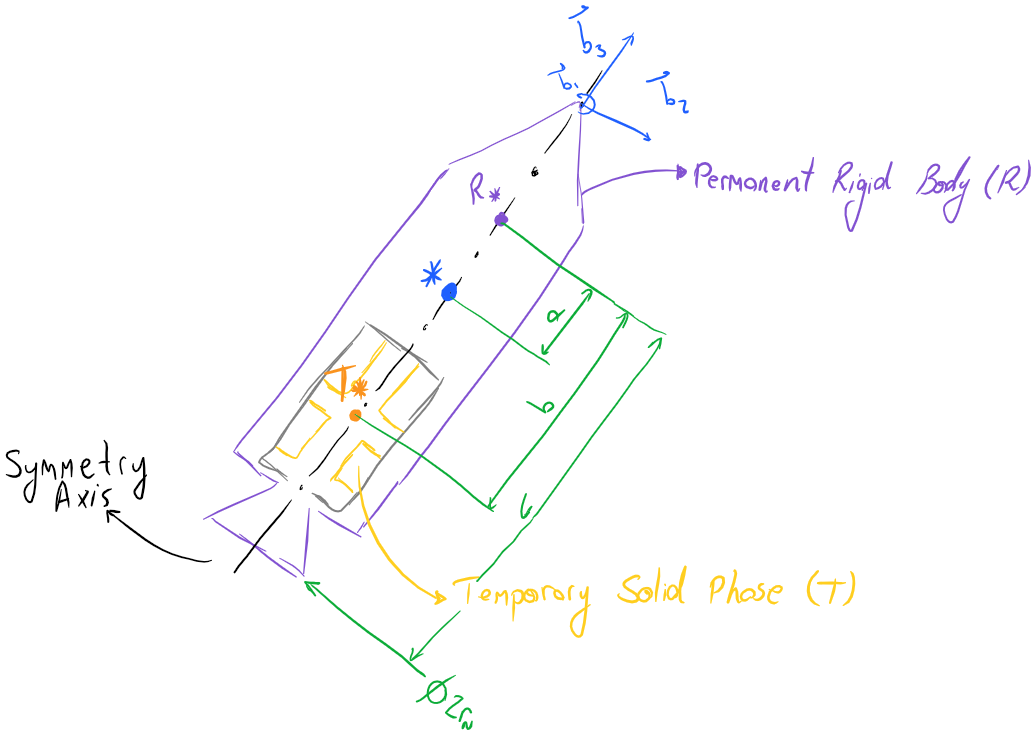 b₃
b₁
b₂
Permanent Rigid Body (R)
R*
*
a
b
T*
Symmetry
Axis
Temporary Solid Phase (T)
Ø2rₙ